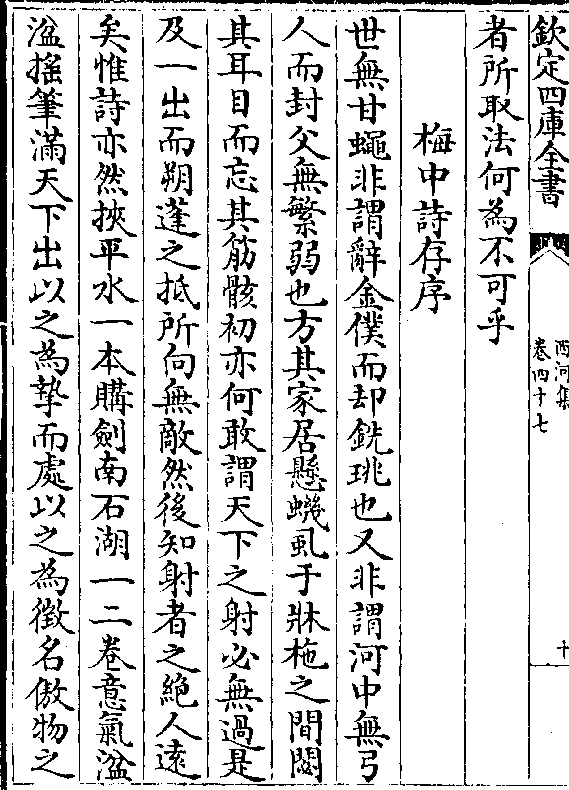 欽定四庫全書
西河集
卷四十七
十
者所取法何為不可乎
梅中詩存序
世無甘蠅非謂辭金僕而却銑珧也又非謂河中無弓
人而封父無繁弱也方其家居懸蟣虱于牀柂之間閼
其耳目而忘其筋骸初亦何敢謂天下之射必無過是
及一出而朔蓬之抵所向無敵然後知射者之絶人遠
矣惟詩亦然挾平水一本購劍南石湖一二卷意氣湓
湓搖筆滿天下出以之為摯而處以之為徵名傲物之